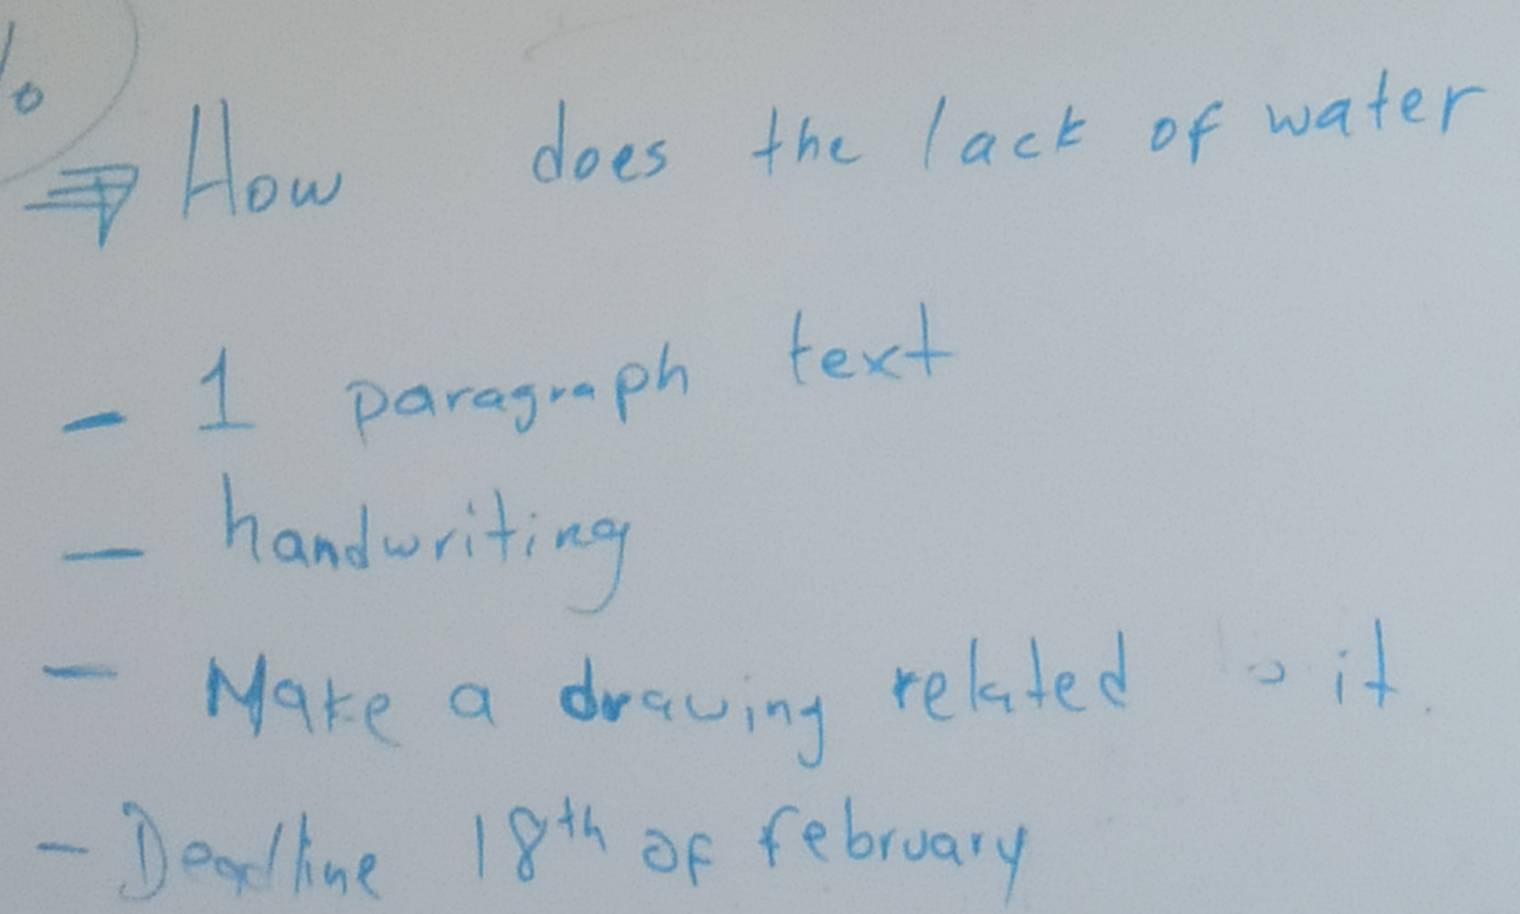 ⇒ How does the lack of water
- 1 paragraph text
- handwriting
- Make a drawing related it.
- Deadline 18th of february